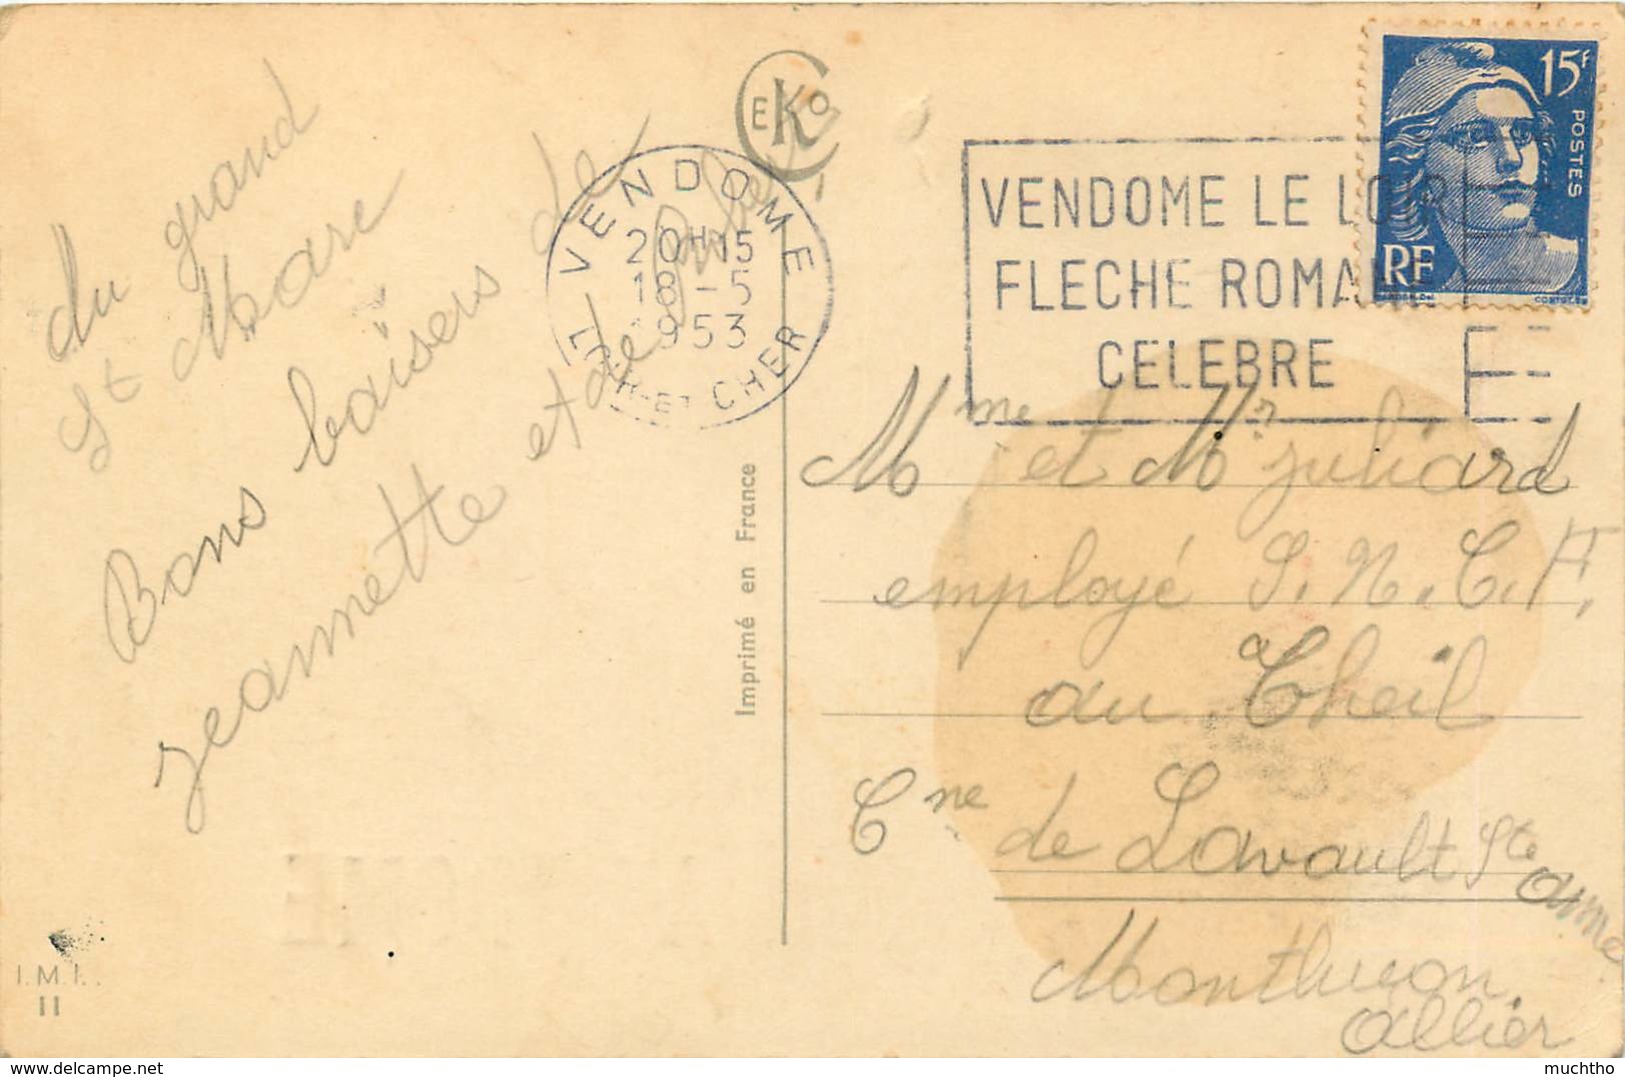 du grand
St Marc
Bons baisers de
jeannette et de
EKO
VENDOME
20H15
18-5
1953
LOIR-ET-CHER
VENDOME LE LOIR
FLECHE ROMANE
CELEBRE
15F
POSTES
RF
Imprimé en France
Mme et Mr juliard
employé S.N.C.F.
au Theil
Cne de Lavault Ste
anne
Montluçon
Allier
I.M.I.
II
delcampe.net
muchtho